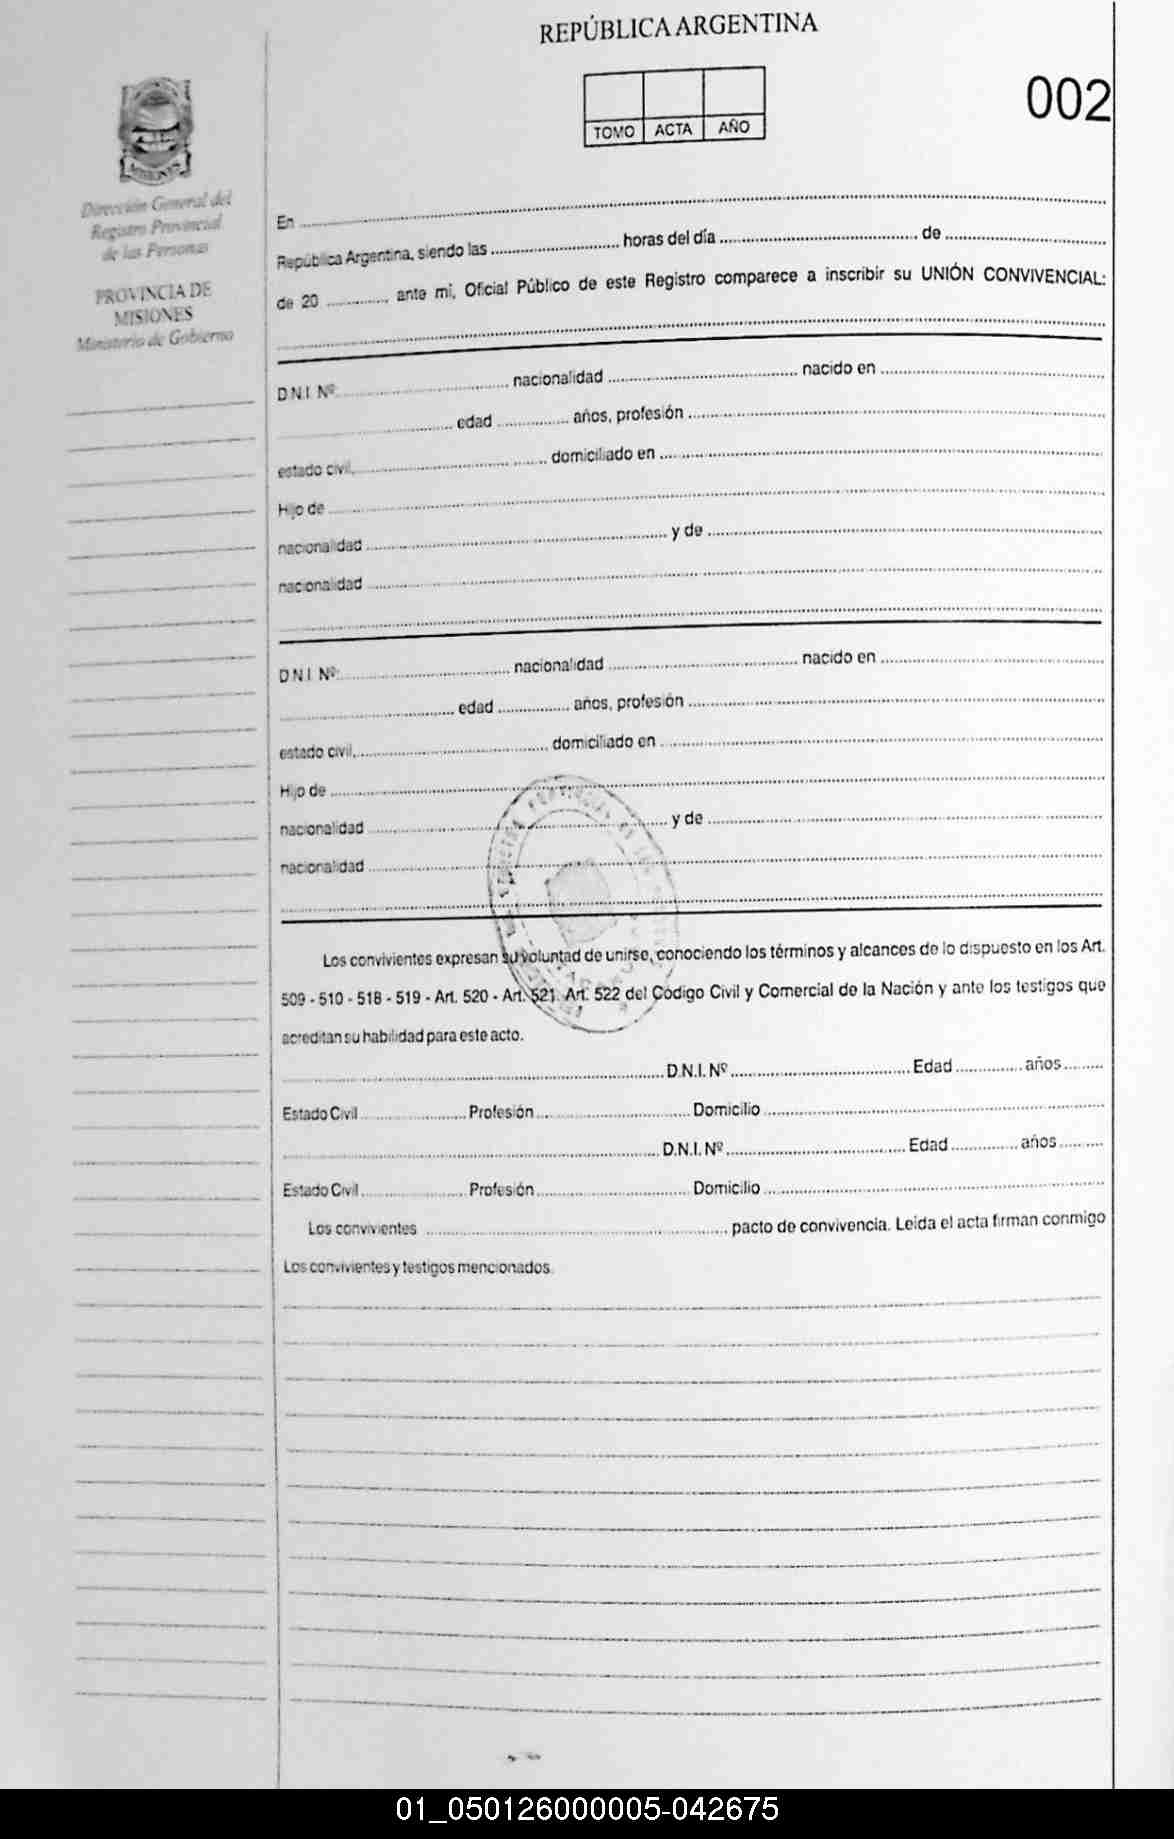 REPÚBLICA ARGENTINA
002
TOMO ACTA AÑO
MISIONES
Dirección General del
Registro Provincial
de las Personas
PROVINCIA DE
MISIONES
Ministerio de Gobierno
En
República Argentina, siendo las horas del día de
de 20 ante mi, Oficial Público de este Registro comparece a inscribir su UNIÓN CONVIVENCIAL:
D.N.I. Nº nacionalidad nacido en
edad años, profesión
estado civil, domiciliado en
Hijo de
nacionalidad y de
nacionalidad
D.N.I. Nº nacionalidad nacido en
edad años, profesión
estado civil, domiciliado en
Hijo de
nacionalidad y de
nacionalidad
Los convivientes expresan su voluntad de unirse, conociendo los términos y alcances de lo dispuesto en los Art.
509 - 510 - 518 - 519 - Art. 520 - Art. 521. Art. 522 del Código Civil y Comercial de la Nación y ante los testigos que
acreditan su habilidad para este acto.
D.N.I. Nº Edad años
Estado Civil Profesión Domicilio
D.N.I. Nº Edad años
Estado Civil Profesión Domicilio
Los convivientes pacto de convivencia. Leida el acta firman conmigo
Los convivientes y testigos mencionados.
01_050126000005-042675